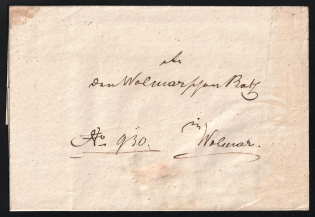 An
den Wolmarschen Rath
in
No 930. Wolmar.